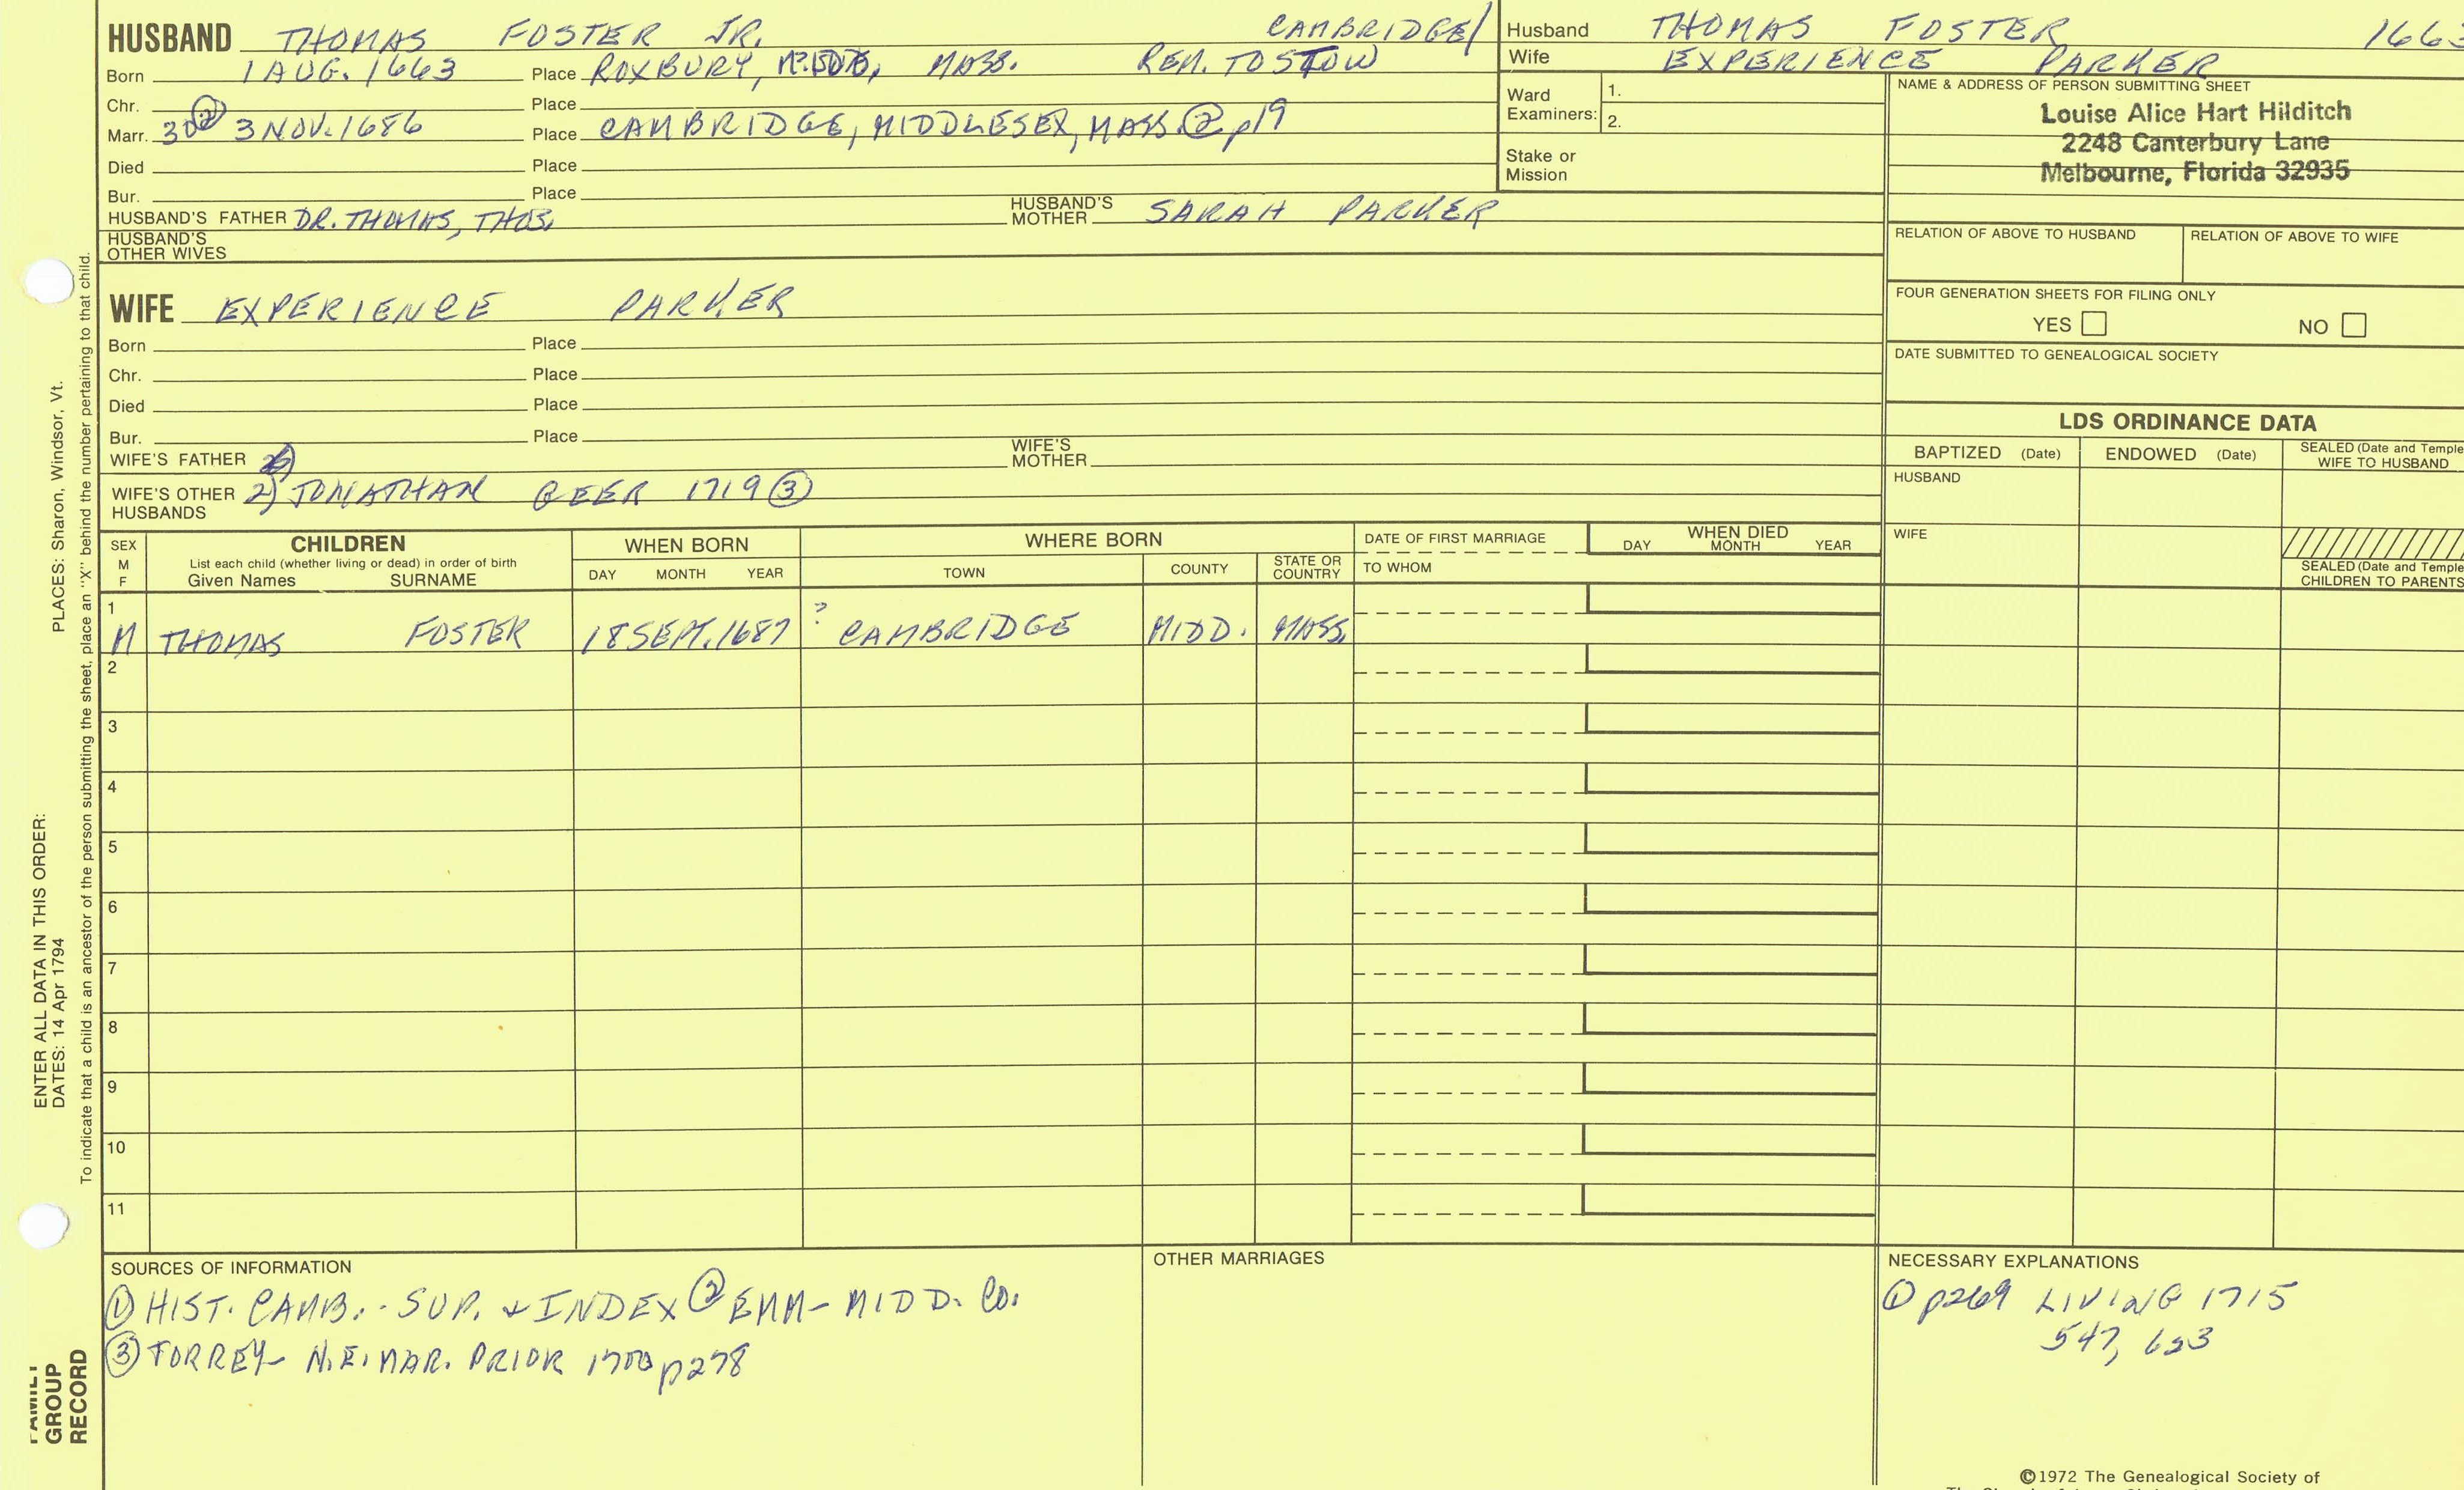 HUSBAND THOMAS FOSTER JR. CAMBRIDGE/
Born 1 AUG. 1663 Place ROXBURY, MASS. REM. TO STOW
Chr. Place
Marr. 30② 3 NOV. 1686 Place CAMBRIDGE, MIDDLESEX, MASS.② p19
Died Place
Bur. Place
HUSBAND'S FATHER DR. THOMAS, THOS. HUSBAND'S MOTHER SARAH PARKER
HUSBAND'S OTHER WIVES
Husband THOMAS FOSTER 1663
Wife EXPERIENCE PARKER
Ward Examiners: 1.
2.
Stake or Mission
NAME & ADDRESS OF PERSON SUBMITTING SHEET
Louise Alice Hart Hilditch
2248 Canterbury Lane
Melbourne, Florida 32935
RELATION OF ABOVE TO HUSBAND RELATION OF ABOVE TO WIFE
FOUR GENERATION SHEETS FOR FILING ONLY
YES NO
DATE SUBMITTED TO GENEALOGICAL SOCIETY
WIFE EXPERIENCE PARKER
Born Place
Chr. Place
Died Place
Bur. Place
WIFE'S FATHER WIFE'S MOTHER
WIFE'S OTHER HUSBANDS 2) JONATHAN GEER 1719 ③
LDS ORDINANCE DATA
BAPTIZED (Date) ENDOWED (Date) SEALED (Date and Temple
WIFE TO HUSBAND
HUSBAND
WIFE
SEALED (Date and Temple
CHILDREN TO PARENTS
SEX M F CHILDREN WHEN BORN WHERE BORN DATE OF FIRST MARRIAGE WHEN DIED
List each child (whether living or dead) in order of birth TO WHOM DAY MONTH YEAR
Given Names SURNAME DAY MONTH YEAR TOWN COUNTY STATE OR COUNTRY
1
M THOMAS FOSTER 18 SEPT. 1687 ? CAMBRIDGE MIDD. MASS.
2
3
4
5
6
7
8
9
10
11
SOURCES OF INFORMATION
① HIST. CAMB. - SUP. & INDEX ② EMM - MIDD. Co.
③ TORREY - N.E. MAR. PRIOR 1700 p278
OTHER MARRIAGES
NECESSARY EXPLANATIONS
① p269 LIVING 1715
547, 623
©1972 The Genealogical Society of
PLACES: Sharon, Windsor, Vt.
ENTER ALL DATA IN THIS ORDER:
DATES: 14 Apr 1794
To indicate that a child is an ancestor of the person submitting the sheet, place an "X" behind the number pertaining to that child.
FAMILY
GROUP
RECORD